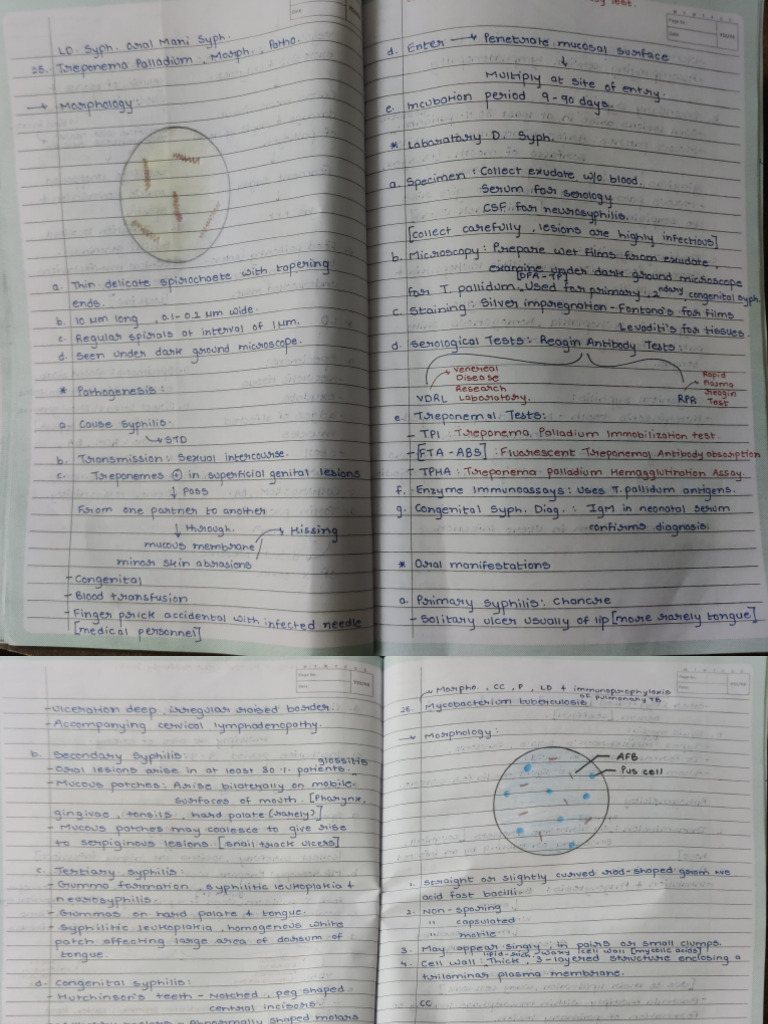 LD. Syph. Oral Mani Syph.
25. Treponema Palladium, Morph., Patho.
→ Morphology:
a. Thin delicate spirochaete with tapering
ends.
b. 10 µm long, 0.1-0.2 µm wide.
c. Regular spirals at interval of 1µm.
d. Seen under dark ground microscope.
* Pathogenesis:
a. Cause Syphilis.
↳ STD
b. Transmission: Sexual intercourse.
c. Treponemes ⊕ in superficial genital lesions
↓ Pass
From one partner to another
↓ through. → Kissing
mucous membrane/
minor skin abrasions
- Congenital
- Blood transfusion
- Finger prick accidental with infected needle
[medical personnel]
d. Enter → Penetrate mucosal surface
↓
Multiply at site of entry.
e. Incubation period 9-90 days.
* Laboratory D. Syph.
a. Specimen: Collect exudate w/o blood.
Serum for serology
CSF for neurosyphilis.
[collect carefully, lesions are highly infectious]
b. Microscopy: Prepare wet films from exudate,
examine under dark ground microscope
[DFA-TP]
for T. pallidum. Used for primary, 2ndary, congenital syph.
c. Staining: Silver impregnation - Fontana's for films
Levoditi's for tissues.
d. Serological Tests: Reagin Antibody Tests:
Venereal
Disease
Research
VDRL Laboratory.
Rapid
Plasma
Reagin
RPR Test
e. Treponemal Tests:
- TPI: Treponema Palladium Immobilization test.
- [FTA-ABS]: Fluorescent Treponemal Antibody absorption
- TPHA: Treponema palladium Hemagglutination Assay.
f. Enzyme Immunoassays: Uses T. pallidum antigens.
g. Congenital Syph. Diag.: IgM in neonatal serum
confirms diagnosis.
* Oral manifestations
a. Primary syphilis: Chancre
- Solitary ulcer usually of lip [more rarely tongue]
- Ulceration deep, irregular raised border.
- Accompanying cervical lymphadenopathy.
b. Secondary Syphilis:
glossitis
- Oral lesions arise in at least 30% patients.
- Mucous patches: Arise bilaterally on mobile
surfaces of mouth. [Pharynx,
gingivae, tonsils, hard palate (rarely)]
- Mucous patches may coalesce to give rise
to serpiginous lesions [snail track ulcers]
c. Tertiary syphilis:
- Gumma formation, syphilitic leukoplakia &
neurosyphilis.
- Gummas on hard palate & tongue.
- Syphilitic leukoplakia, homogenous white
patch affecting large area of dorsum of
tongue.
d. Congenital syphilis:
- Hutchinson's teeth - Notched, peg shaped
central incisors.
- Abnormally shaped molars
Morpho., CC, P, LD + immunoprophylaxis
of pulmonary TB
26. Mycobacterium tuberculosis.
→ Morphology:
AFB
Pus cell
1. Straight or slightly curved rod-shaped gram +ve
acid fast bacilli.
2. Non-sporing
" capsulated
" motile
3. May appear singly, in pairs or small clumps.
lipid-rich, waxy cell wall [mycolic acids]
4. Cell wall: Thick, 3-layered structure enclosing a
trilaminar plasma membrane.
CC